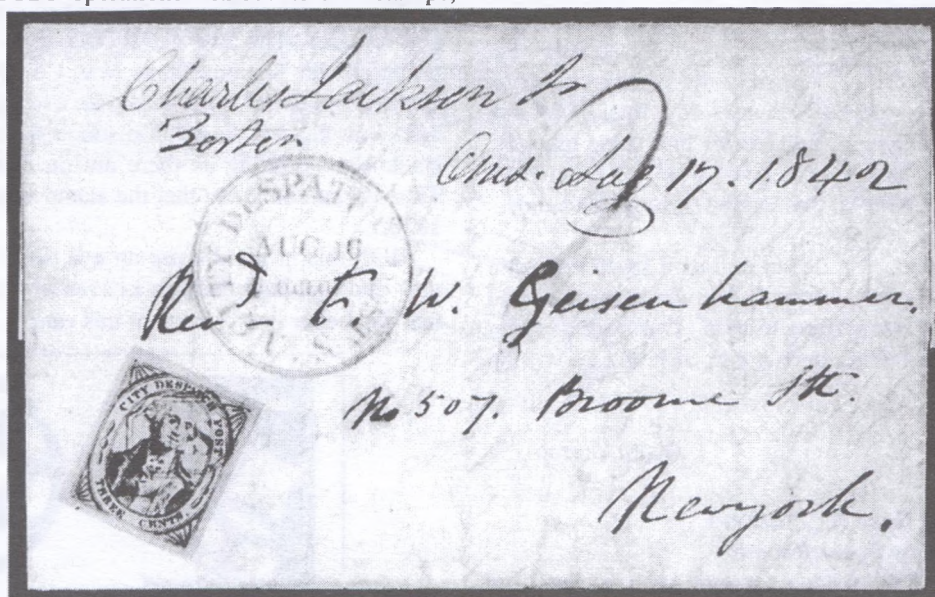 Charles Jackson Jr
Boston
Ans. Aug 17. 1842
CITY DESPATCH
AUG 16
N.Y.
Revd F. W. Geisenhammer.
No 507. Broome Stt.
Newyork.
CITY DESPATCH POST
THREE CENTS.